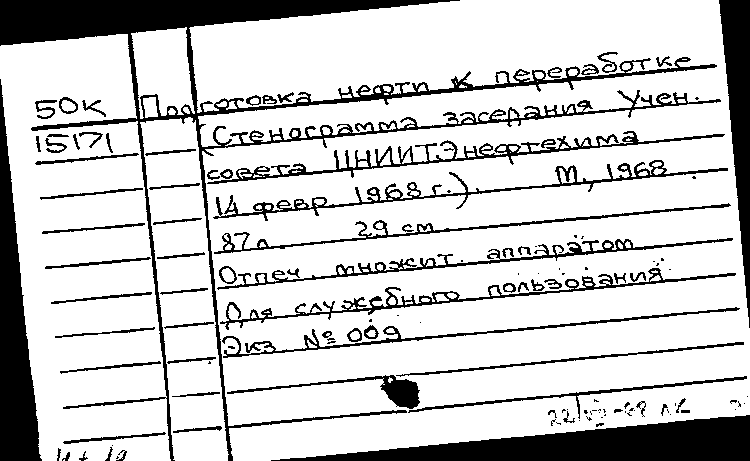 50К Подготовка нефти к переработке
15171 (Стенограмма заседания Учен.
совета ЦНИИТЭнефтехима
14 февр. 1968 г.). М., 1968.
87 л. 29 см.
Отпеч. множит. аппаратом
Для служебного пользования
Экз № 009